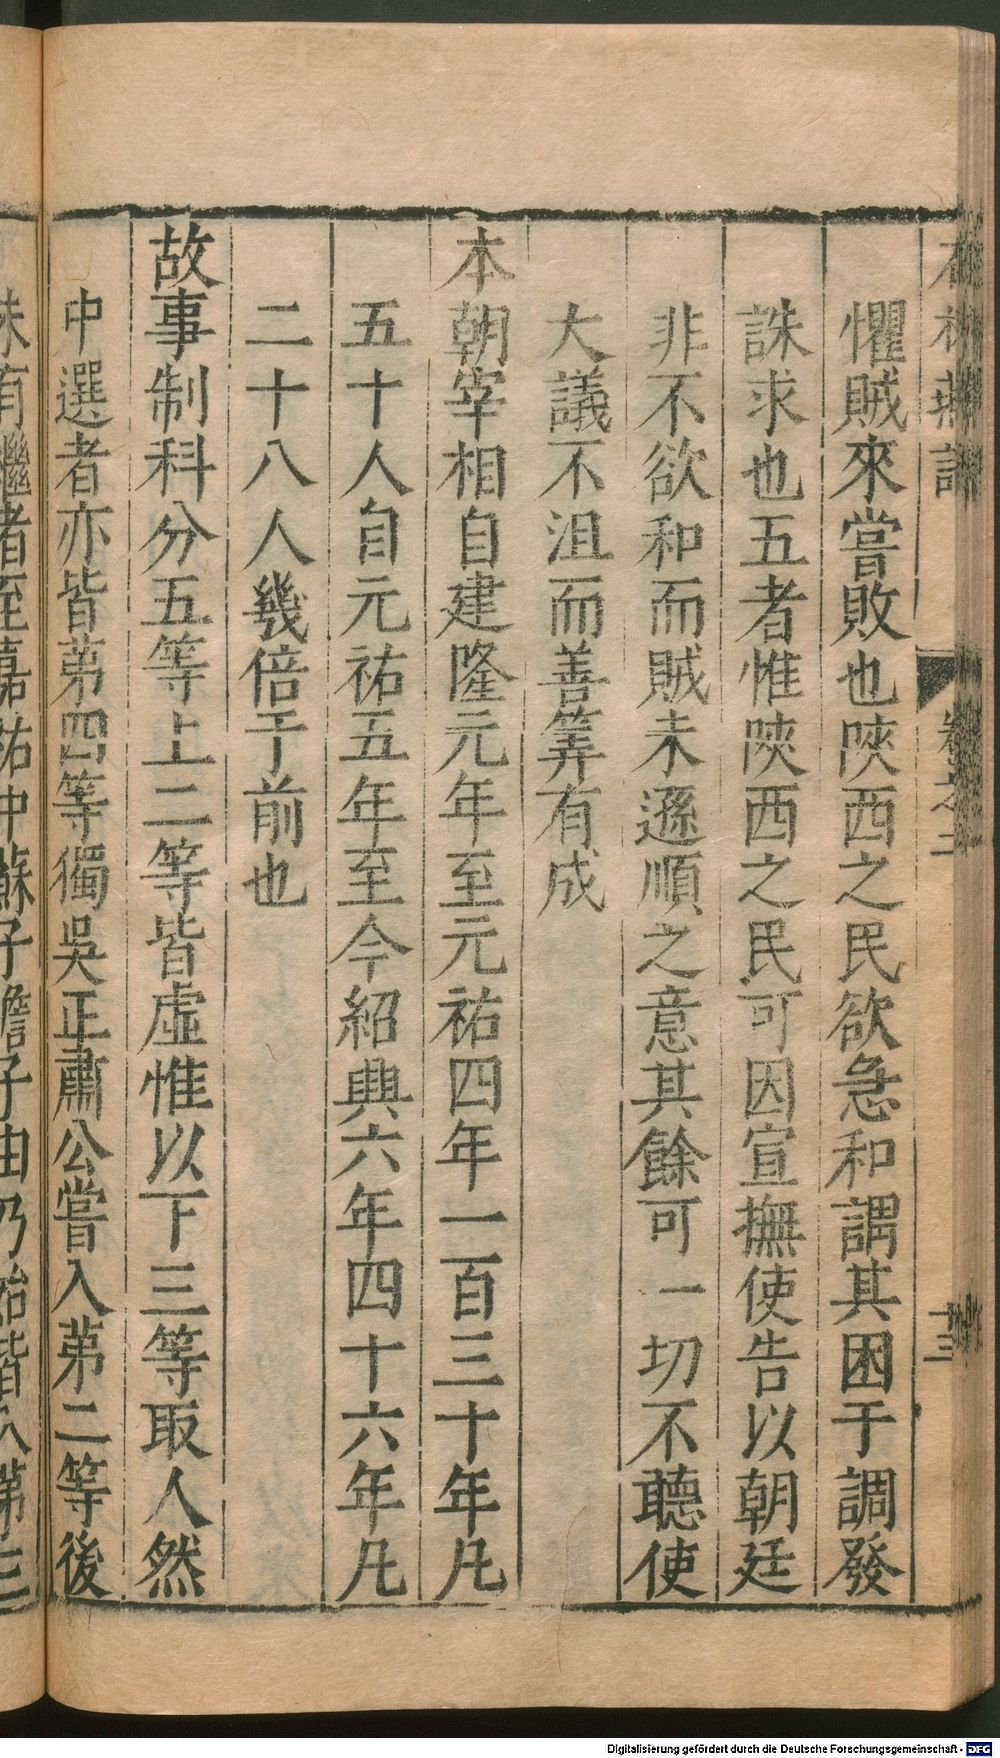 懼賊來嘗敗也陝西之民欲急和謂其困于調發
誅求也五者惟陝西之民可因宣撫使告以朝廷
非不欲和而賊未遜順之意其餘可一切不聽使
大議不沮而善筭有成
本朝宰相自建隆元年至元祐四年一百三十年凡
五十人自元祐五年至今紹興六年四十六年凡
二十八人幾倍于前也
故事制科分五等上二等皆虛惟以下三等取人然
中選者亦皆第四等獨吳正肅公嘗入第二等後
未有繼者至嘉祐中蘇子瞻子由乃始皆入第三
Digitalisierung gefördert durch die Deutsche Forschungsgemeinschaft - DFG